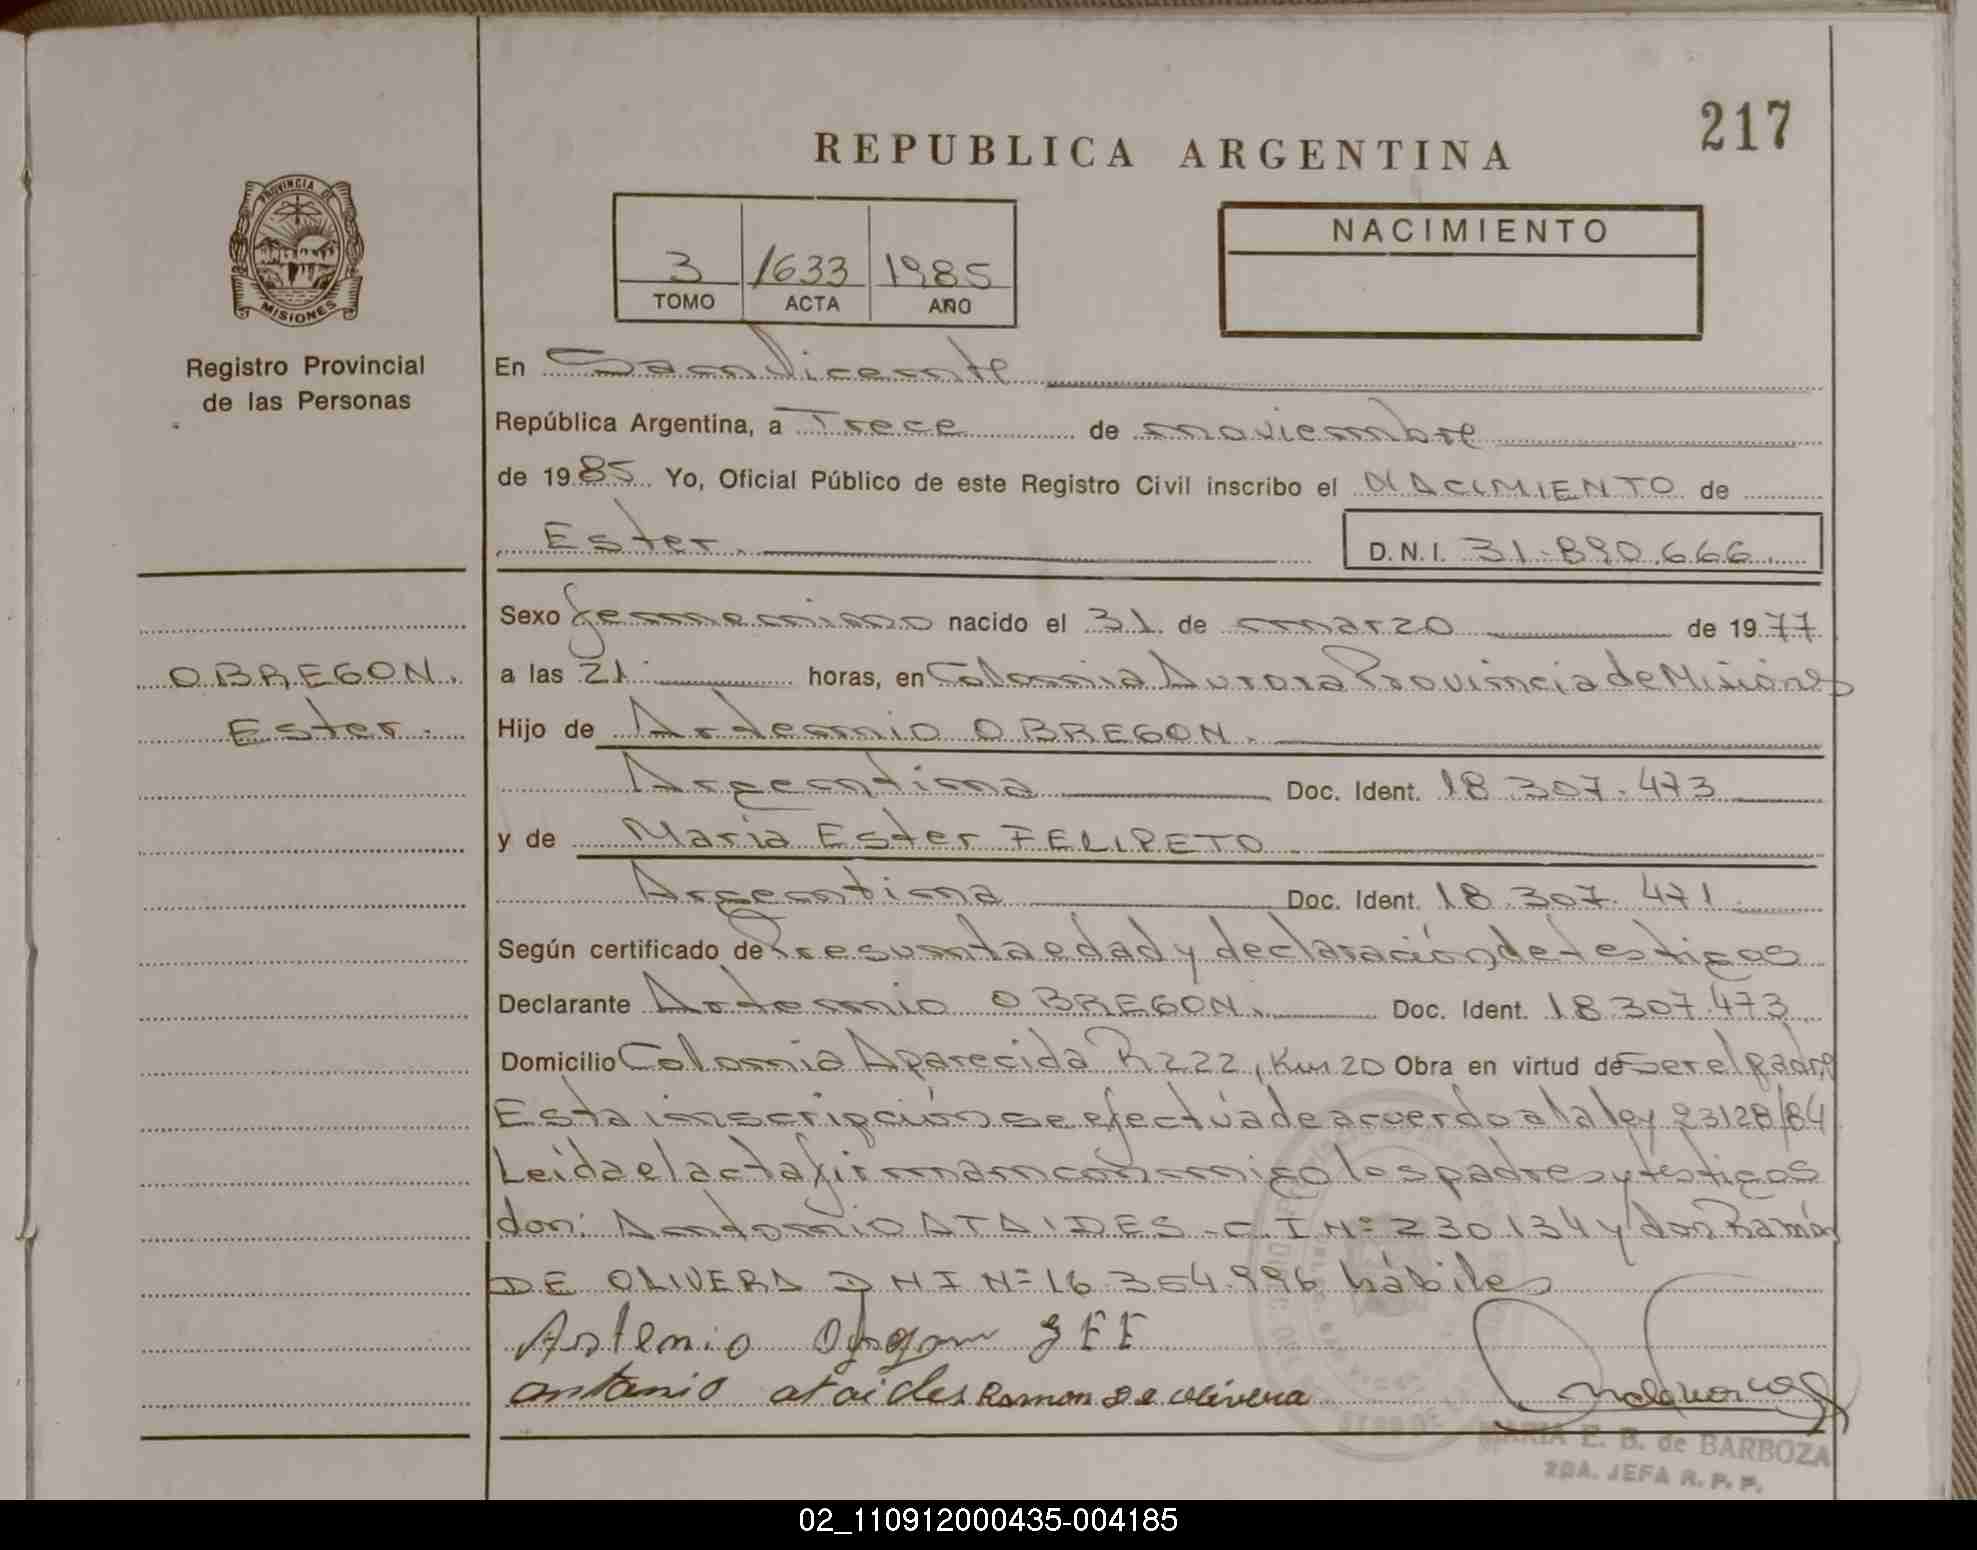 217
REPUBLICA ARGENTINA
PROVINCIA DE
MISIONES
Registro Provincial
de las Personas
3 1633 1985
TOMO ACTA AÑO
NACIMIENTO
En San Vicente
República Argentina, a Trece de noviembre
de 1985. Yo, Oficial Público de este Registro Civil inscribo el NACIMIENTO de
Ester. D.N.I. 31.890.666.
OBREGON.
Ester.
Sexo femenino nacido el 31 de marzo de 1977
a las 21 horas, en Colonia Aurora Provincia de Misiones
Hijo de Artemio OBREGON.
Argentina Doc. Ident. 18.307.473
y de María Ester FELIPETO
Argentina Doc. Ident. 18.307.471
Según certificado de Presunta edad y declaración de testigos
Declarante Artemio OBREGON. Doc. Ident. 18.307.473
Domicilio Colonia Aparecida R222, Km 20 Obra en virtud de Ser el padre
Esta inscripción se efectúa de acuerdo a la ley 23128/84
Leída el acta firman conmigo los padres y testigos
don: Antonio ATAIDES - C.I.Nº 230.134 y don Ramón
DE OLIVERA D N I Nº 16.354.996 hábiles
Artemio Obregon
antonio ataides Ramon De Olivera
MARIA E. B. de BARBOZA
2DA. JEFA R. P. P.
02_110912000435-004185